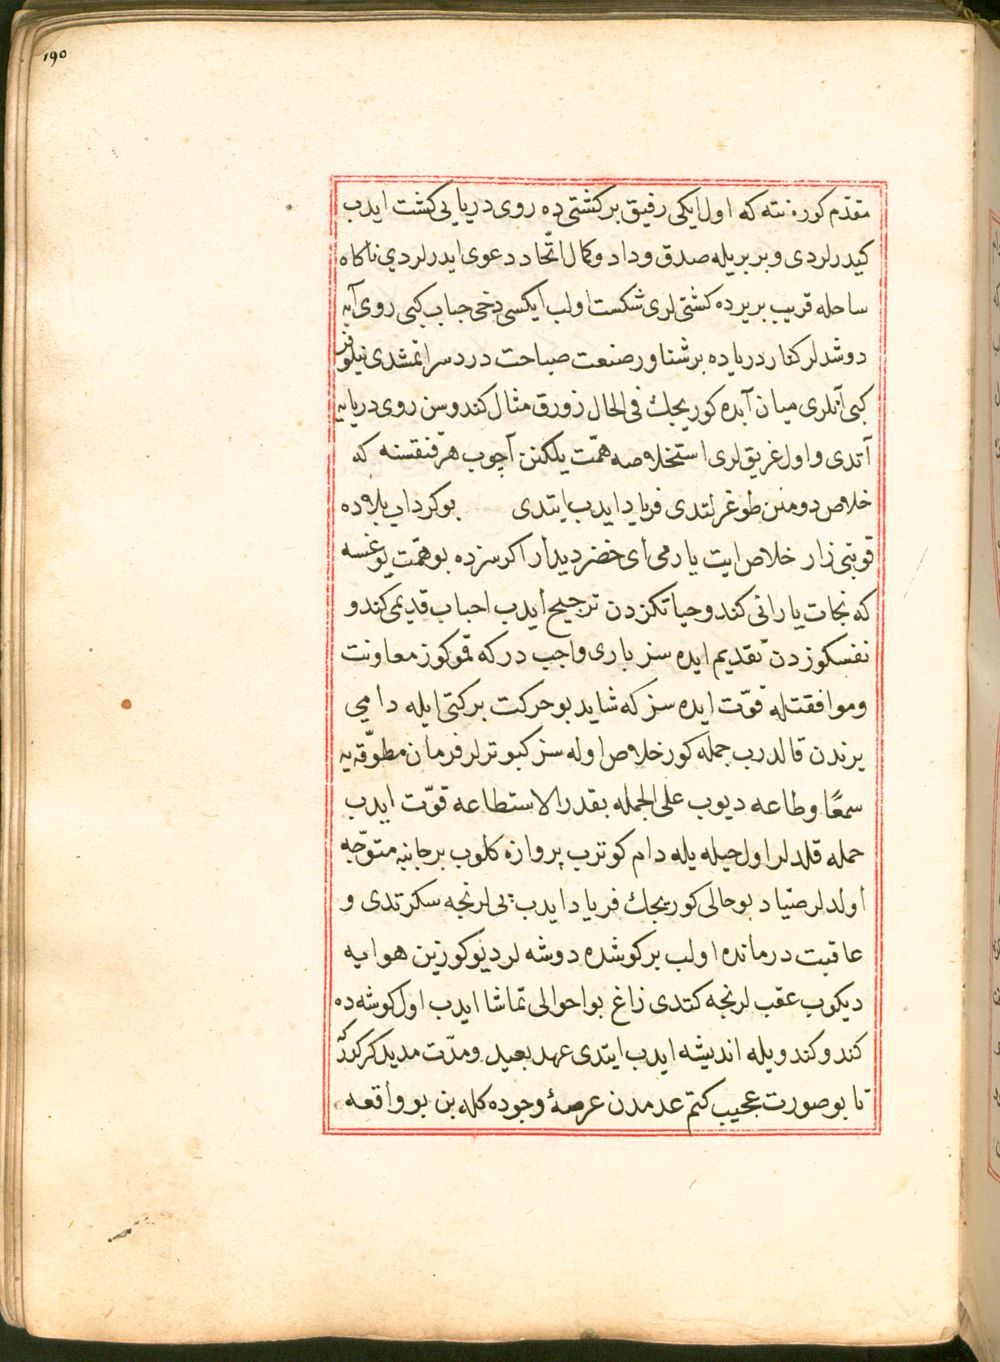 ١٩٥
مقدّم كوره نته كه اول ايكى رفيق بر كشتى ده روى دريايى كشت ايدب
كيدرلردى و بر بريله صدق و داد و كمال اتّحاد دعوى ايدرلردي ناكاه
ساحله قريب بر يرده كشتى لرى شكست اولب ايكسى دخى حباب كبى روى آبه
دوشدلر كنار درياده بر شناور صنعت صباحت در دسرانمشدى نيلوفر
كبى آنلرى ميان آبده كوريجك فى الحال زورق مثال كندوسن روى دريايه
آتدى و اول غريق لرى استخلاصه همّت يلكنن آچوب هر قنقسنه كه
خلاص دومنن طوغرلتدى فرياد ايدب ايتدى بو كرداب بلاده
قو بنى زار خلاص ايت يارمى اى خضر ديدار اكر سزده بو همّت يوغسه
كه نجات يارانى كندو حياتكزدن ترجيح ايدب احباب قديمى كندو
نفسكوزدن تقديم ايده سز بارى واجب در كه قموكوز معاونت
و موافقتله قوّت ايده سز كه شايد بو حركت بركتى ايله دامى
يرندن قالدرب جمله كوز خلاص اوله سز كبوترلر فرمان مطوّقه يه
سمعًا وطاعه ديوب على الجمله بقدر الاستطاعه قوّت ايدب
حمله قلدلر اول حيله يله دام كوترب پروازه كلوب بر جانبه متوّجه
اولدلر صيّاد بو حالى كوريجك فرياد ايدب پى لرنجه سكرتدى و
عاقبت درمانده اولب بر كوشه ده دوشه لر ديو كوزين هوايه
ديكوب عقب لرنجه كتدى زاغ بو احوالى تماشا ايدب اول كوشه ده
كندو كندويله انديشه ايدب ايتدى عهد بعيد و مدّت مديد كركدر
تا بو صورت عجيب كتم عدمدن عرصهٔ وجوده كله بن بو واقعه